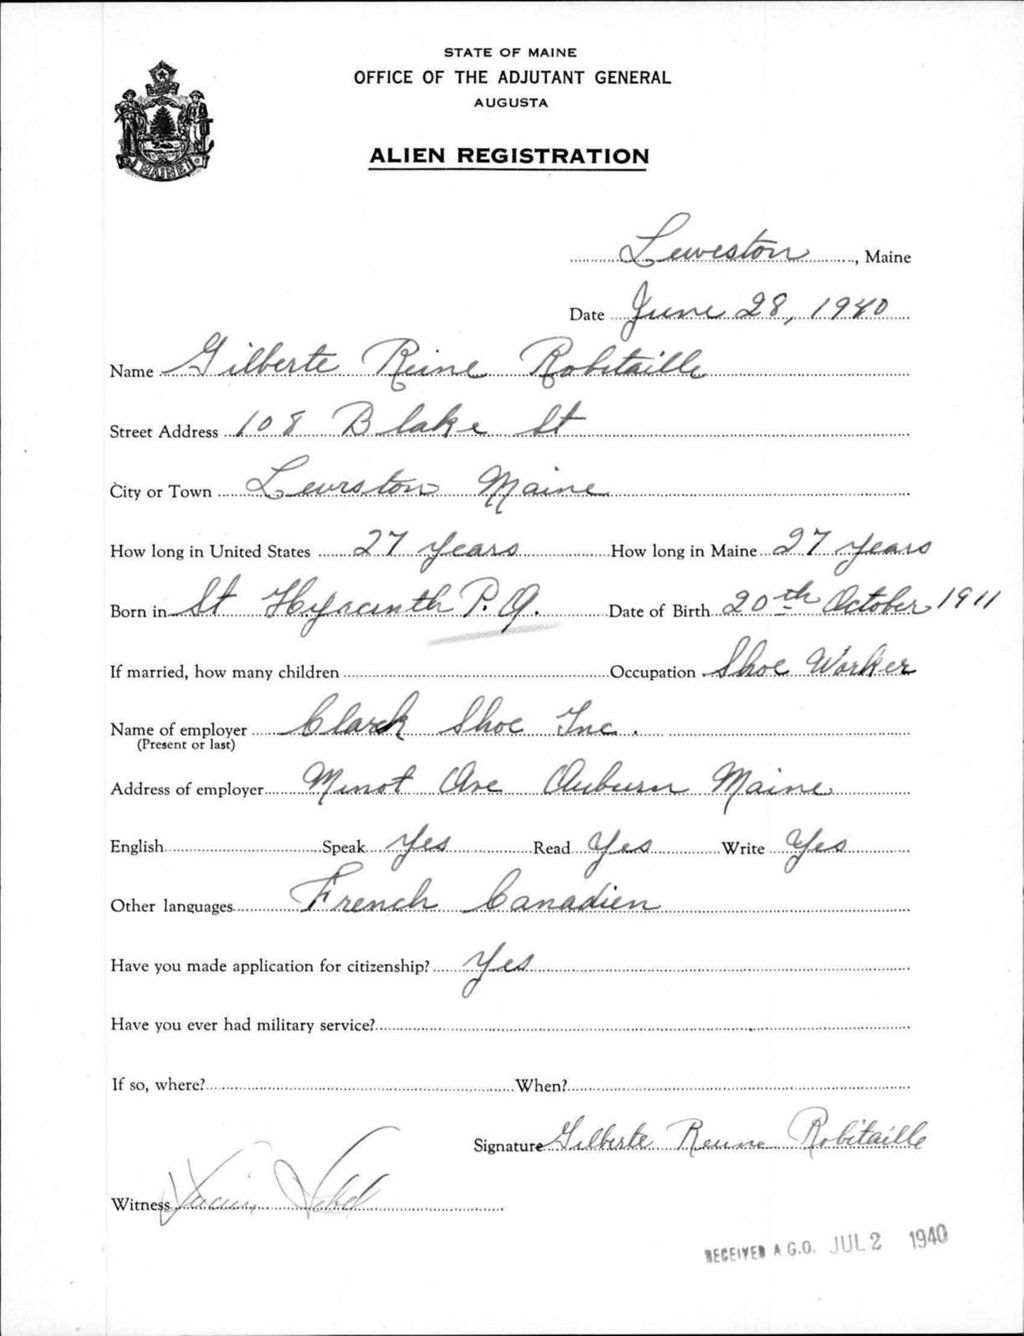 STATE OF MAINE
OFFICE OF THE ADJUTANT GENERAL
AUGUSTA
ALIEN REGISTRATION
MAINE
Leweston, Maine
Date June 28, 1940
Name Gilberte Reine Robitaille
Street Address 108 Blake St
City or Town Lewiston Maine
How long in United States 27 years How long in Maine 27 years
Born in St Hyacinth P. Q. Date of Birth 20th October 1911
If married, how many children Occupation Shoe Worker
Name of employer Clark Shoe Inc.
(Present or last)
Address of employer Minot Ave Auburn Maine
English Speak Yes Read Yes Write Yes
Other languages French Canadien
Have you made application for citizenship? Yes
Have you ever had military service?
If so, where? When?
Signature Gilberte Reine Robitaille
Witness
RECEIVED A.G.O. JUL 2 1940